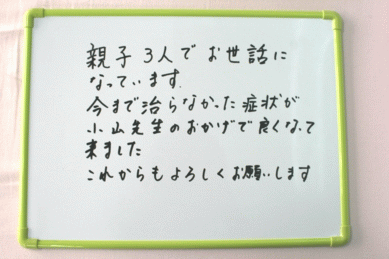 親子3人でお世話に
なっています.
今まで治らなかった症状が
小山先生のおかげで良くなって
来ました
これからもよろしくお願いします